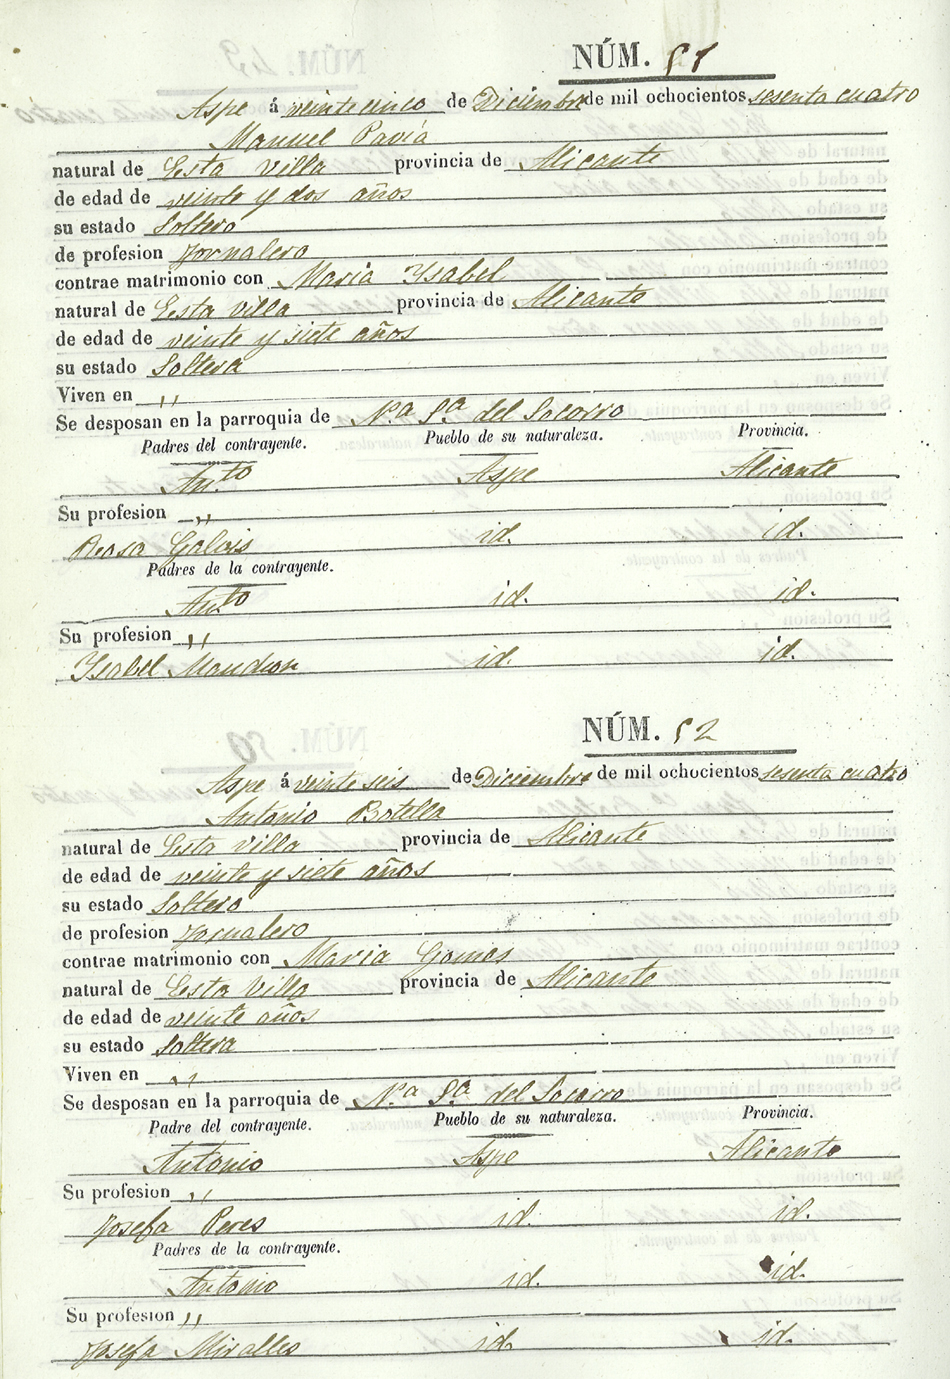 NÚM. 51
Aspe á veinte cinco de Diciembre de mil ochocientos sesenta cuatro
Manuel Pavía
natural de Esta Villa provincia de Alicante
de edad de veinte y dos años
su estado Soltero
de profesion Jornalero
contrae matrimonio con Maria Ysabel
natural de Esta villa provincia de Alicante
de edad de veinte y siete años
su estado Soltera
Viven en ,,
Se desposan en la parroquia de N.ª S.ª del Socorro
Padres del contrayente. Pueblo de su naturaleza. Provincia.
Ant.to Aspe Alicante
Su profesion ,,
Rosa id. id.
Padres de la contrayente.
Ant.to id. id.
Su profesion ,,
Ysabel id. id.
NÚM. 52
Aspe á veinte seis de Diciembre de mil ochocientos sesenta cuatro
Antonio Botella
natural de Esta villa provincia de Alicante
de edad de veinte y siete años
su estado Soltero
de profesion Jornalero
contrae matrimonio con Maria Gomes
natural de Esta Villa provincia de Alicante
de edad de veinte años
su estado Soltera
Viven en ,,
Se desposan en la parroquia de N.ª S.ª del Socorro
Padre del contrayente. Pueblo de su naturaleza. Provincia.
Antonio Aspe Alicante
Su profesion ,,
Josefa Peres id. id.
Padres de la contrayente.
Antonio id. id.
Su profesion ,,
Josefa Miralles id. id.